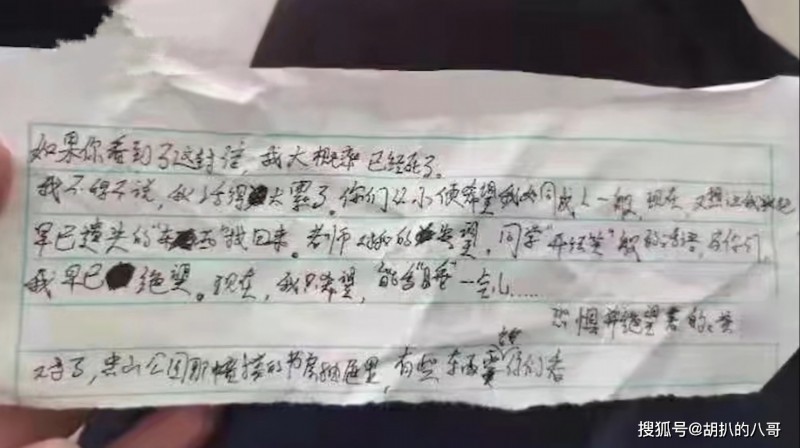 如果你看到了这封信,我大概率已经死了。
我不得不说,我活得太累了。你们从小便希望我如同成人一般,现在,又想让我找
早已遗失的"东西"找回来。老师对我的失望,同学"开玩笑"般的话语,与你们,
我早已绝望。现在,我只希望,能多"睡"一会儿……
恐惧并绝望着的
对了,公园那幢楼的书房抽屉里,有些东西要给你们看
搜狐号@胡扒的八哥